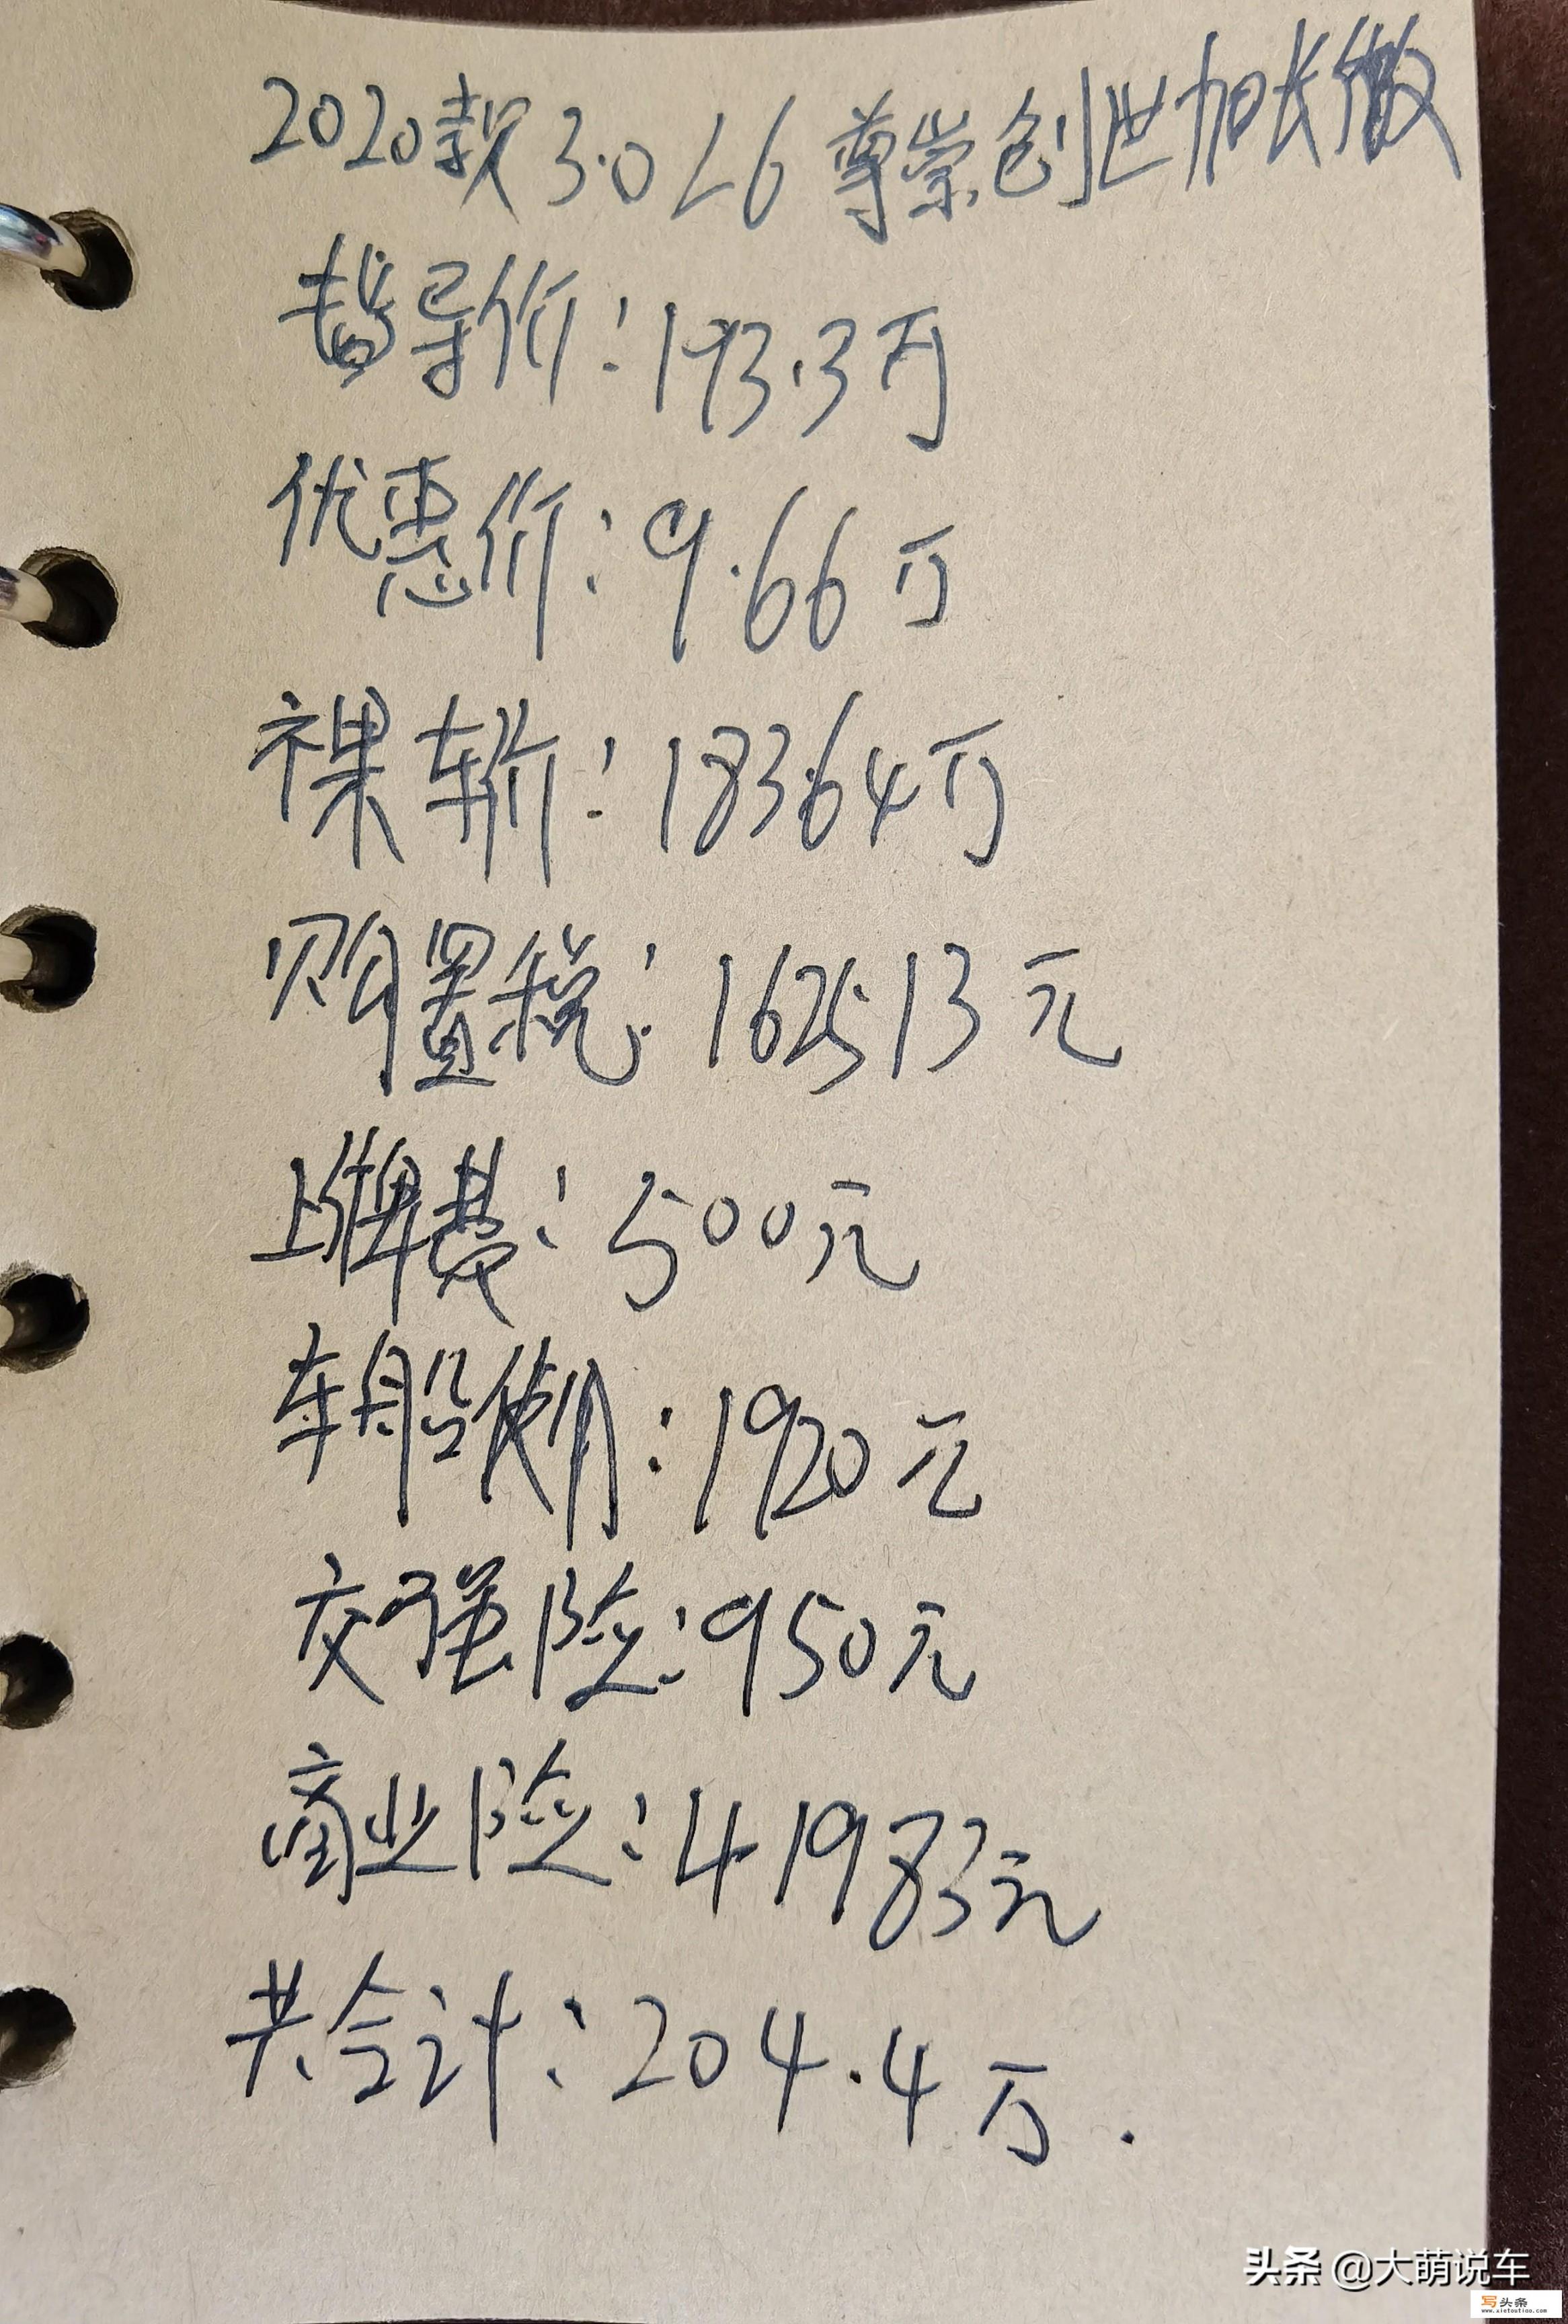 2020款3.0L6尊崇创世加长版
指导价:193.3万
优惠价:9.66万
裸车价:183.64万
购置税:162513元
上牌费:500元
车船使用:1920元
交强险:950元
商业险:41983元
共合计:204.4万.
头条 @大萌说车
写头条
www.xietoutiao.com